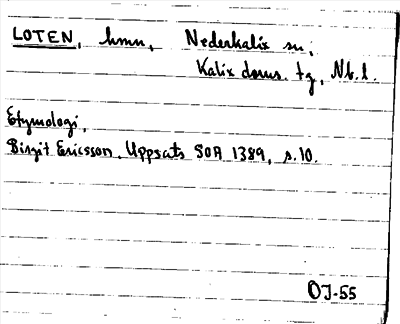 LOTEN, hmn, Nederkalix sn;
Kalix doms. tg, Nb. l.
Etymologi,
Birgit Ericsson. Uppsats SOA 1389, s. 10.
OJ-55